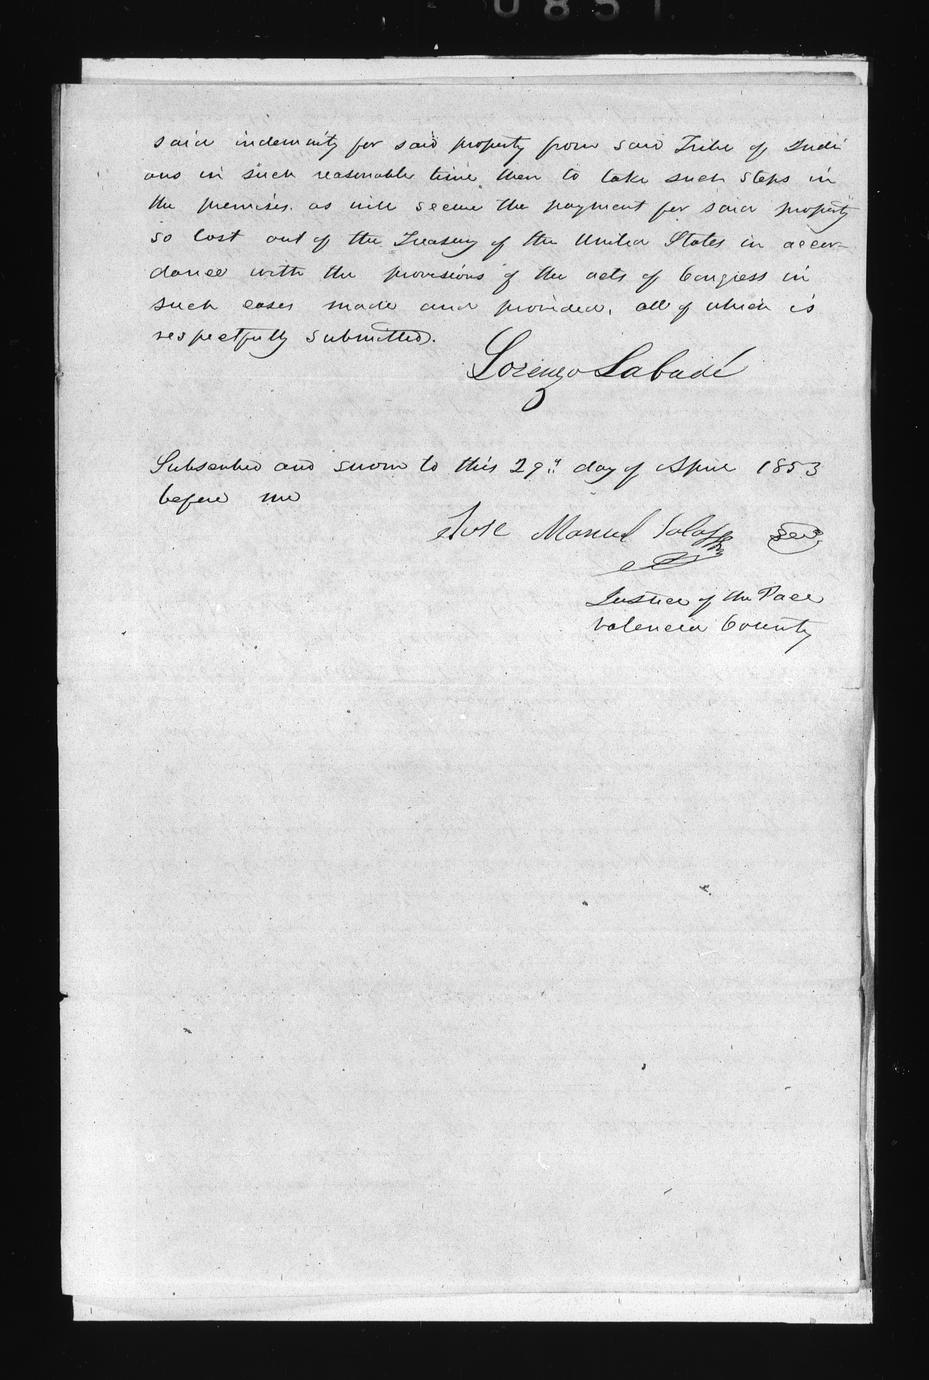 0851
said indemnity for said property from said Tribe of Indi
ans in such reasonable time then to take such steps in
the premises. as will secure the payment for said property
so lost out of the Treasury of the United States in accor-
dance with the provisions of the acts of Congress in
such cases made and provided, all of which is
respectfully submitted.
Lorenzo Labadi
Subscribed and sworn to this 29" day of April 1853
before me
Jose Manuel
Justice of the Pace
Valencia County